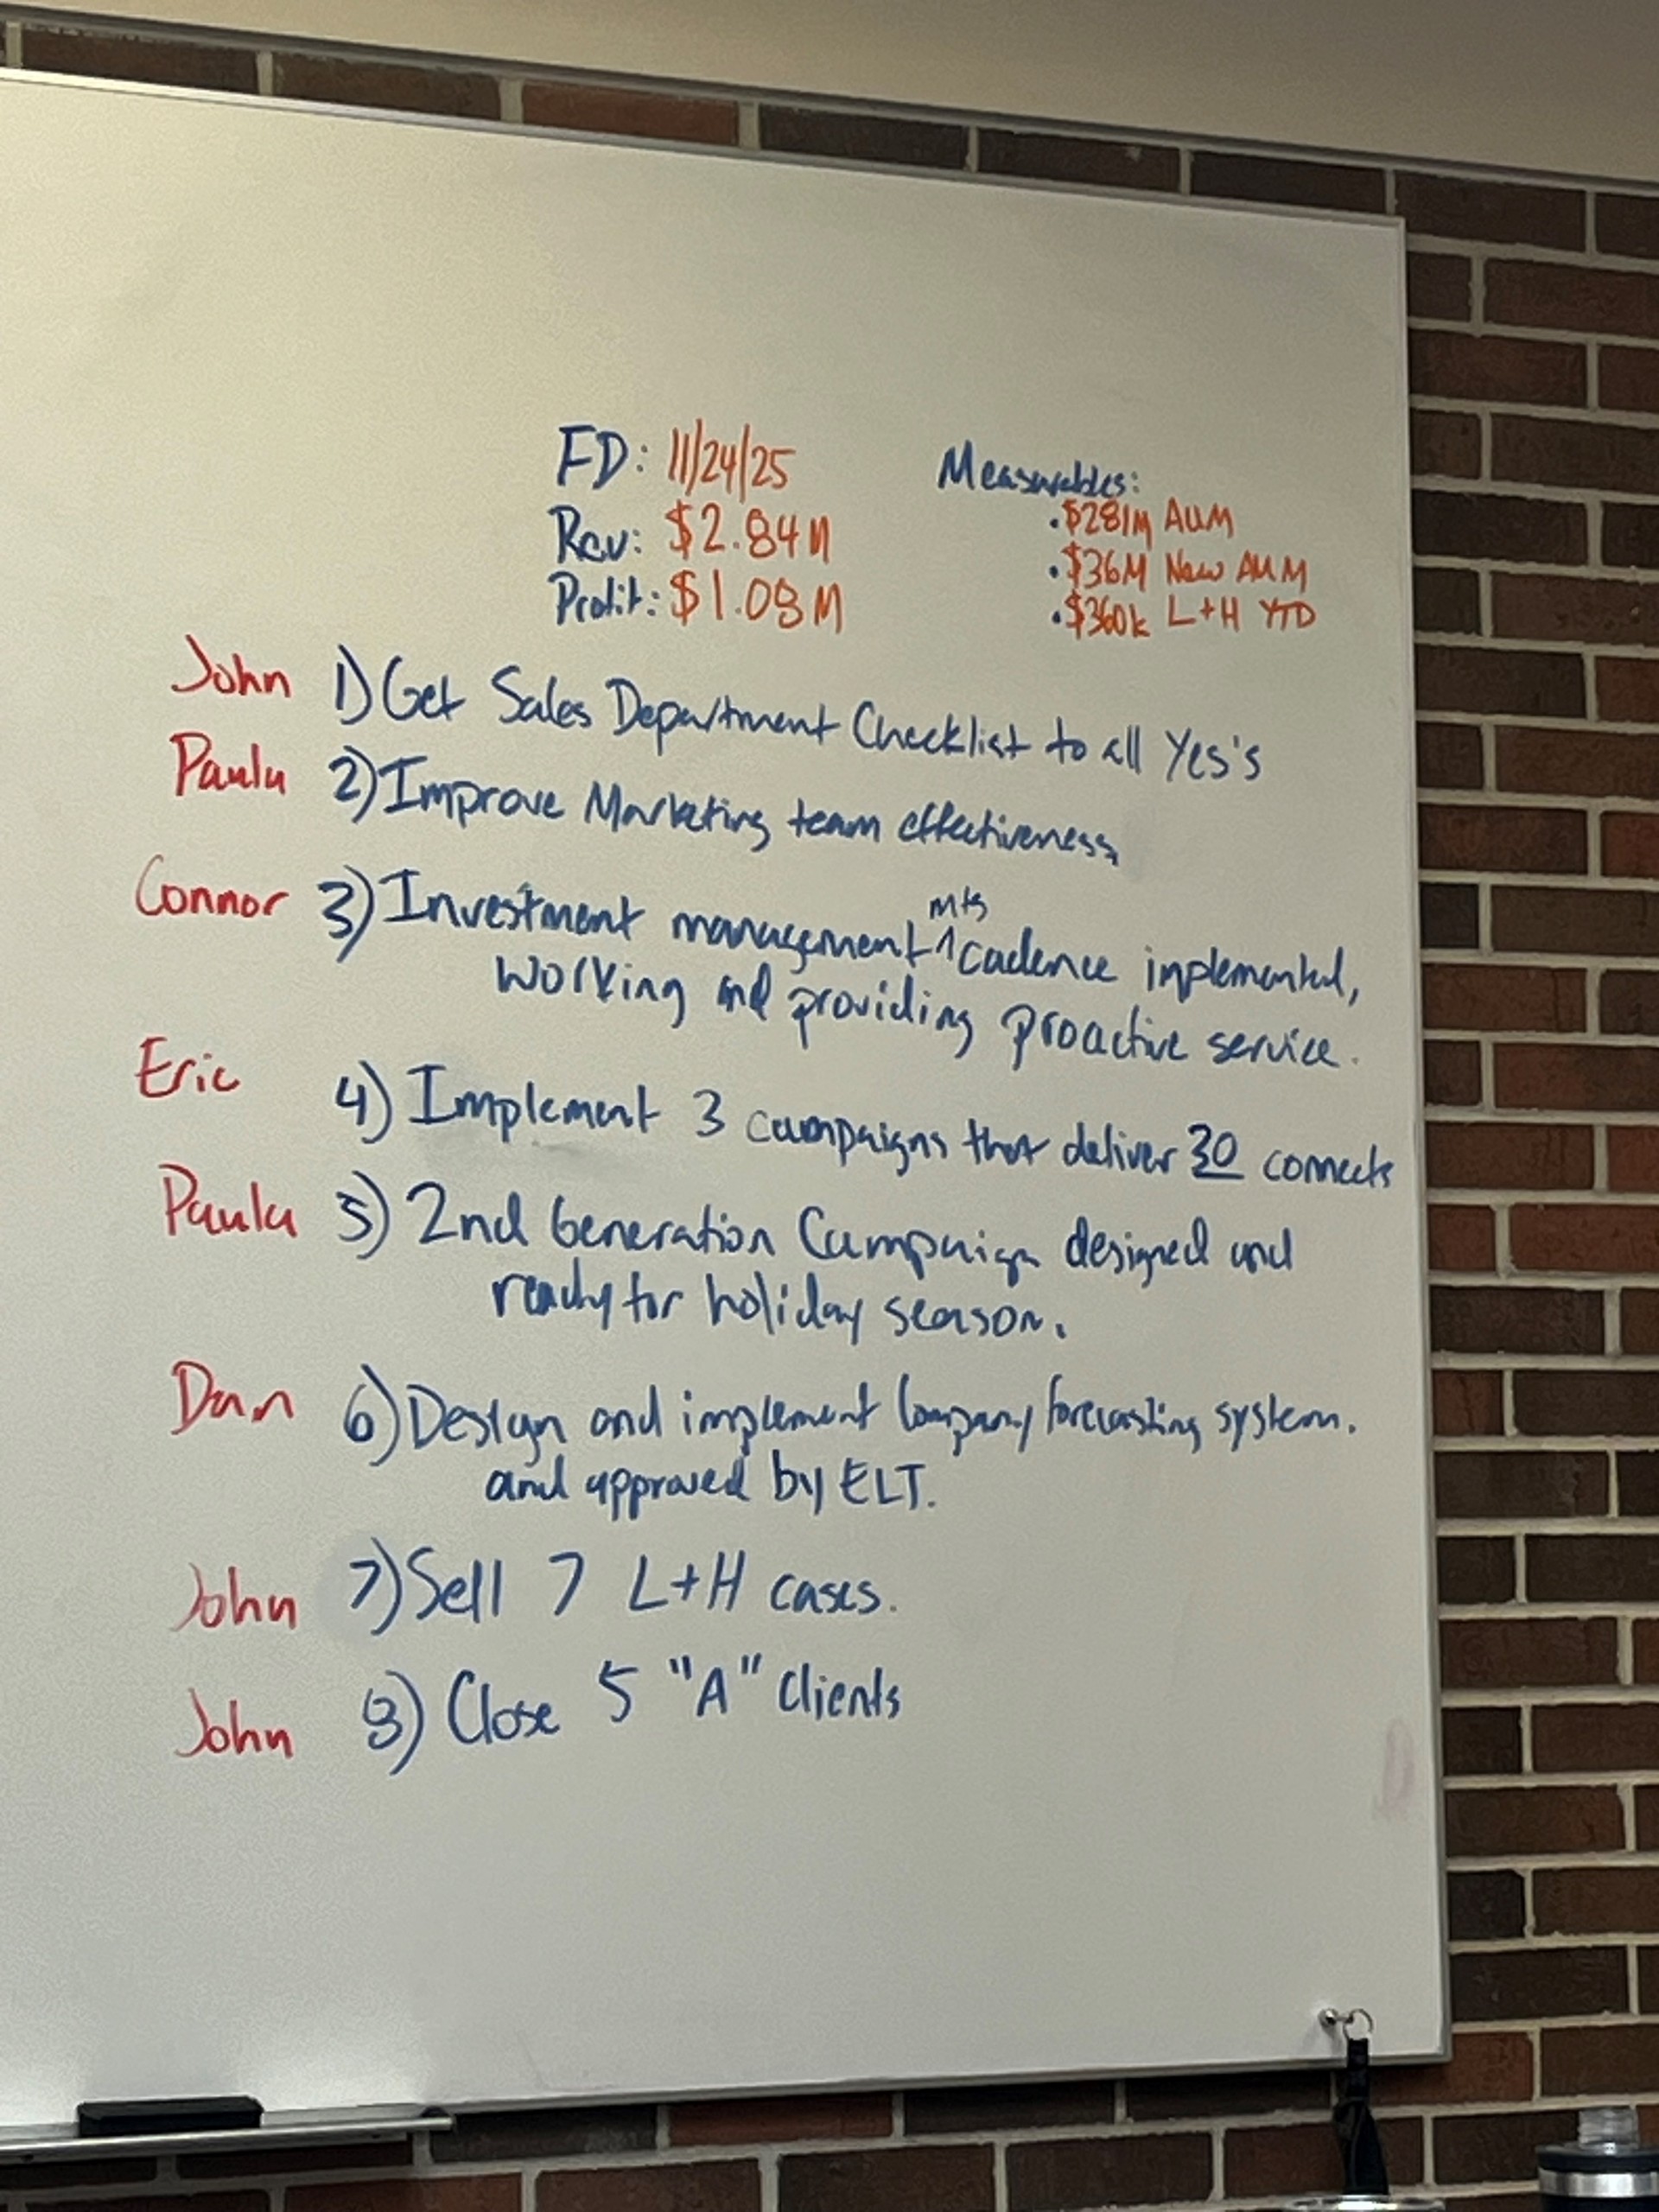 FD: 11/24/25
Rev: $2.84M
Profit: $1.08M
Measurables:
• $281M AUM
• $36M New AUM
• $360k L+H YTD
John 1) Get Sales Department Checklist to all Yes's
Paula 2) Improve Marketing team effectiveness
Connor 3) Investment management ^ mtg cadence implemented,
working and providing proactive service.
Eric 4) Implement 3 campaigns that deliver 30 connects
Paula 5) 2nd Generation Campaign designed and
ready for holiday season.
Dan 6) Design and implement Company forecasting system.
and approved by ELT.
John 7) Sell 7 L+H cases.
John 8) Close 5 "A" Clients